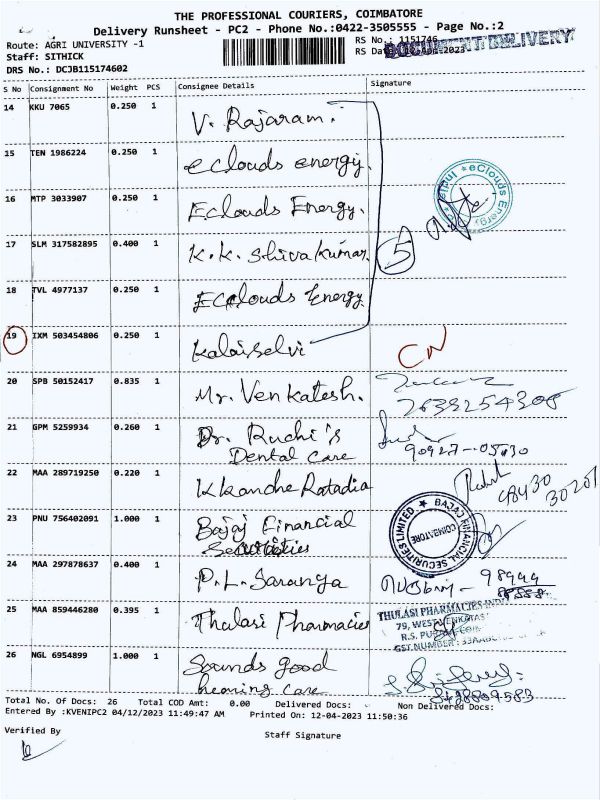 THE PROFESSIONAL COURIERS, COIMBATORE
Delivery Runsheet - PC2 - Phone No.:0422-3505555 - Page No.:2
Route: AGRI UNIVERSITY -1
RS No.: 1151746
Staff: SITHICK
DOCUMENT DELIVERY
DRS No.: DCJB115174602
S No Consignment No Weight PCS Consignee Details Signature
14 KKU 7065 0.250 1 V. Rajaram.
15 TEN 1986224 0.250 1 eclouds energy.
16 MTP 3033907 0.250 1 Eclouds Energy.
eClouds Energy
17 SLM 317582895 0.400 1 K.K. Shiva kumar. 5
18 TVL 4977137 0.250 1 EClouds Energy
19 IXM 503454806 0.250 1 Kalaiselvi CN
20 SPB 50152417 0.835 1 Mr. Venkatesh.
21 GPM 5259934 0.260 1 Dr. Ruchi's
Dental Care
22 MAA 289719250 0.220 1
23 PNU 756402091 1.000 1 Bajaj Financial
Securities
BAJAJ FINANCIAL SECURITIES LIMITED
COIMBATORE
24 MAA 297878637 0.400 1 P.L. Saranya
25 MAA 859446280 0.395 1 Thulasi Pharmacies
THULASI PHARMACIES
79, WEST
R.S.
GST NUMBER:
26 NGL 6954899 1.000 1 Sounds good
hearing care
Total No. Of Docs: 26 Total COD Amt: 0.00 Delivered Docs: Non Delivered Docs:
Entered By :KVENIPC2 04/12/2023 11:49:47 AM Printed On: 12-04-2023 11:50:36
Verified By
Staff Signature